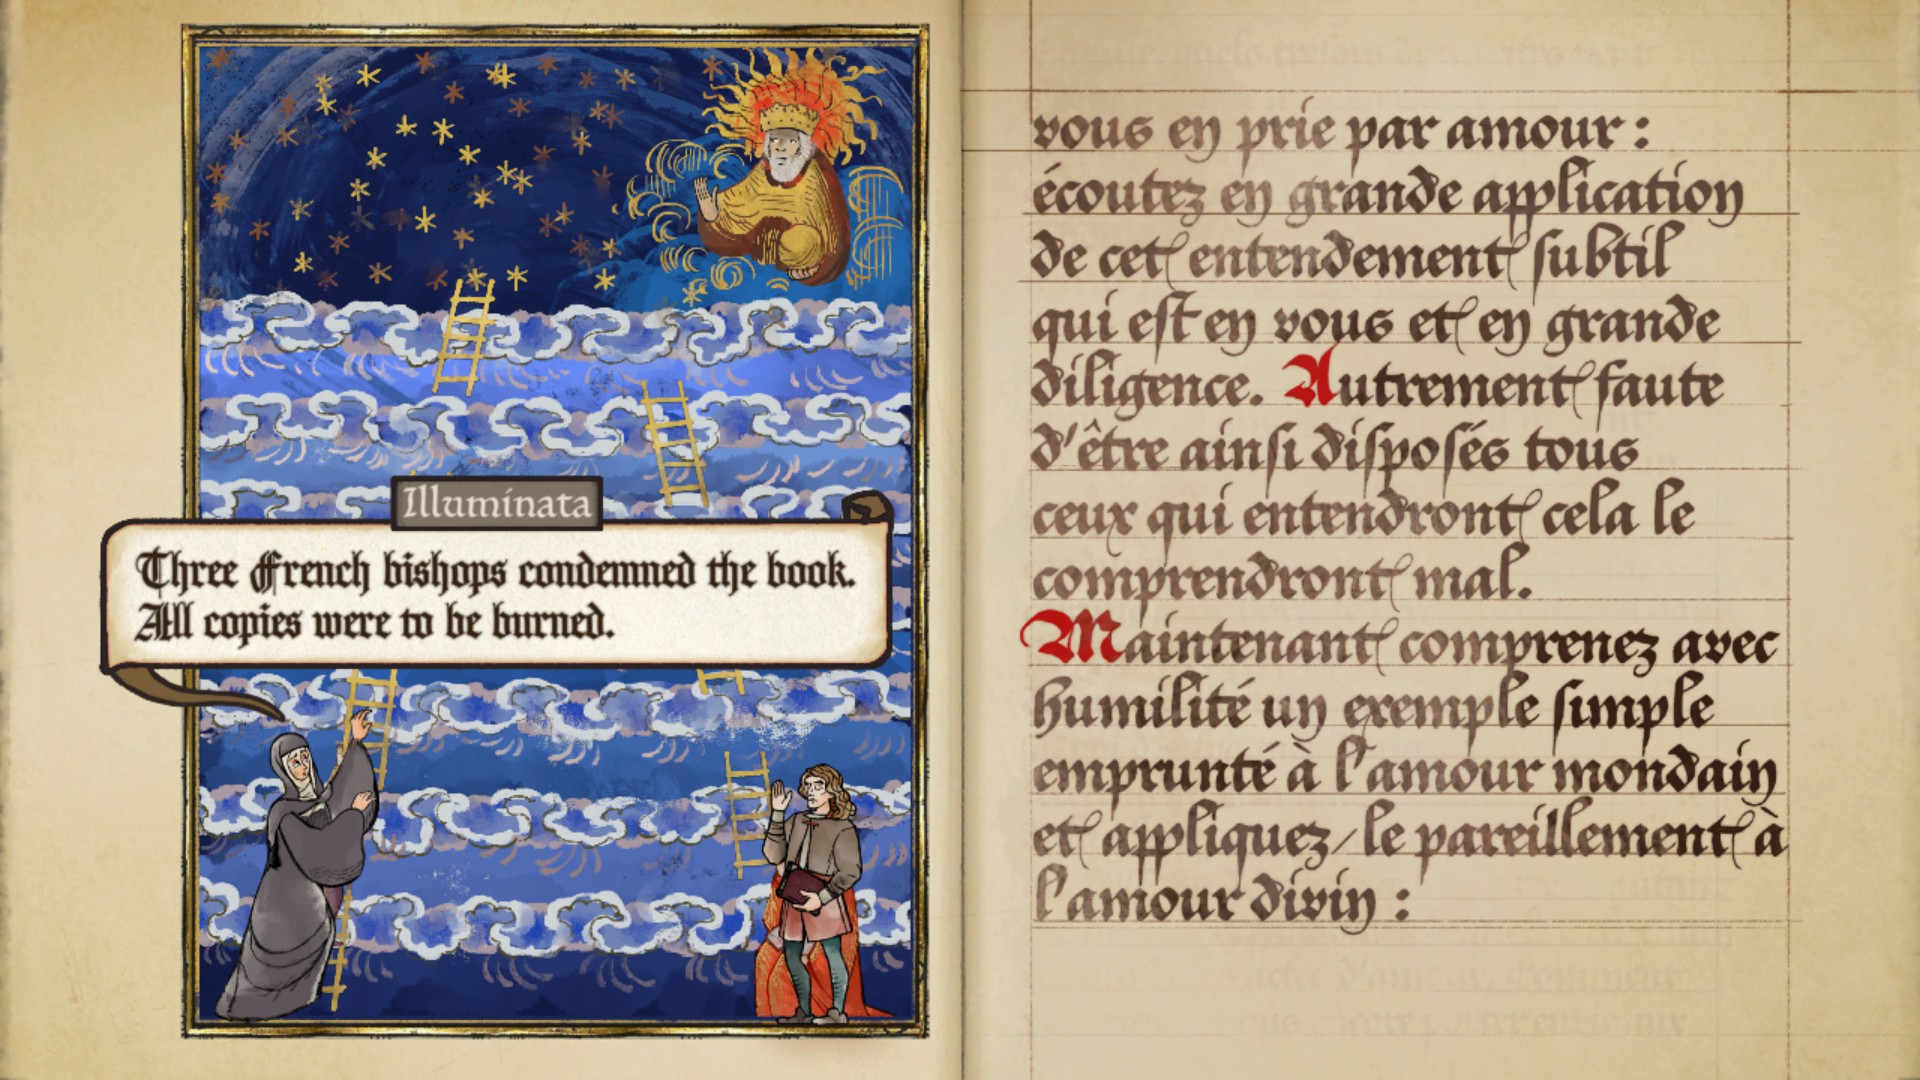 Illuminata
Three French bishops condemned the book.
All copies were to be burned.
vous en prie par amour :
écoutez en grande application
de cet entendement subtil
qui est en vous et en grande
diligence. Autrement faute
d'être ainsi disposés tous
ceux qui entendront cela le
comprendront mal.
Maintenant comprenez avec
humilité un exemple simple
emprunté à l'amour mondain
et appliquez-le pareillement à
l'amour divin :